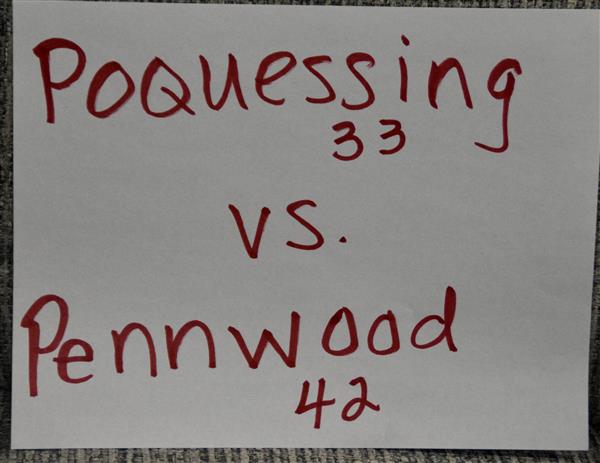 Poquessing
33
vs.
Pennwood
42